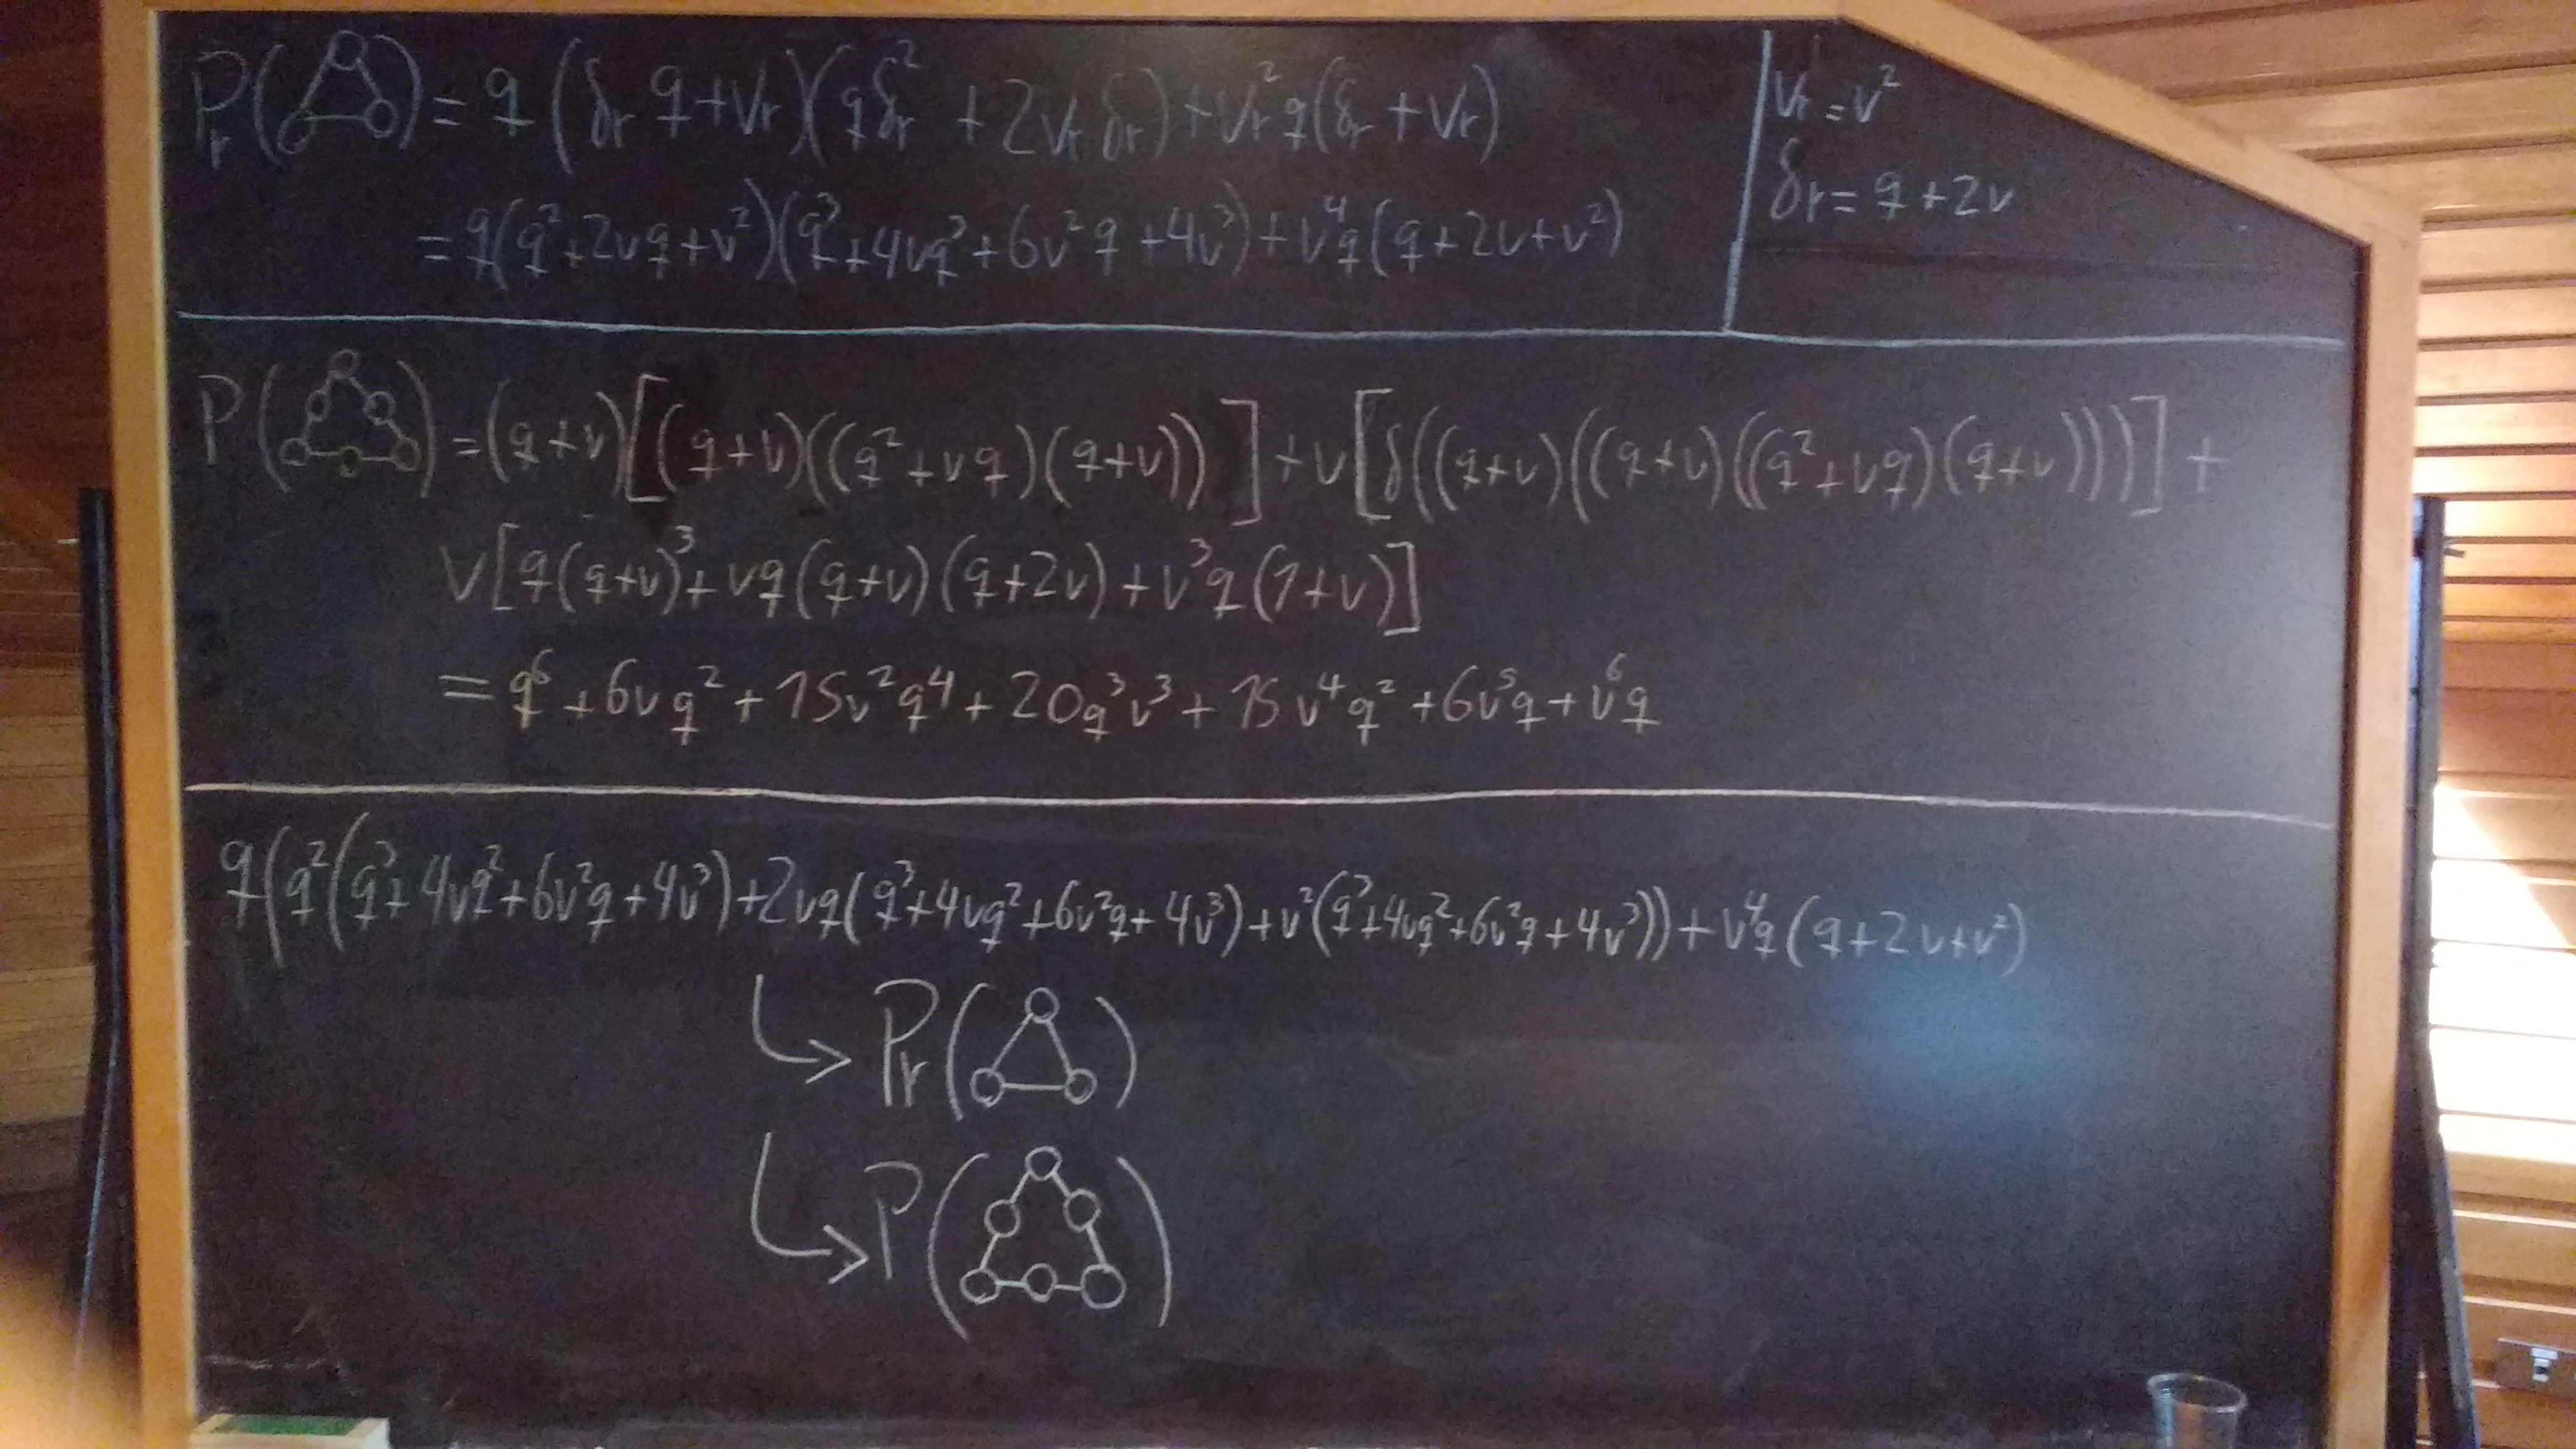 Pr( ) = q(δr q+vr)(qδr²+2vr δr)+vr²q(δr+vr)
= q(q²+2vq+v²)(q³+4vq²+6v²q+4v³)+v⁴q(q+2v+v²)
vr=v²
δr=q+2v
P( ) =(q+v)[(q+v)((q²+vq)(q+v))]+v[δ((q+v)((q+v)((q²+vq)(q+v))))]+
v[q(q+v)³+vq(q+v)(q+2v)+v³q(1+v)]
=q⁶+6vq²+15v²q⁴+20q³v³+15v⁴q²+6v⁵q+v⁶q
q(q²(q³+4vq²+6v²q+4v³)+2vq(q³+4vq²+6v²q+4v³)+v²(q³+4vq²+6v²q+4v³))+v⁴q(q+2v+v²)
↳ Pr( )
↳ P( )